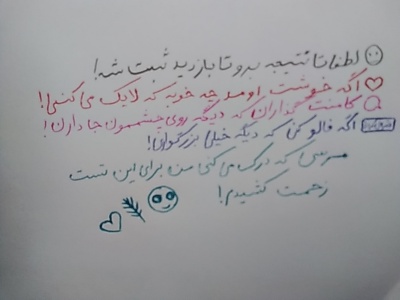 لطفا تا نتیجه برو تا بازدید ثبت شه!
اگه خوشت اومد چه خوبه که لایک می کنی!
کامنت گذاران که دیگه روی چشممون جا دارن!
اگه فالو کنی که دیگه خیلی بزرگواری!
مرسی که درک می کنی من برای این تست
زحمت کشیدم!